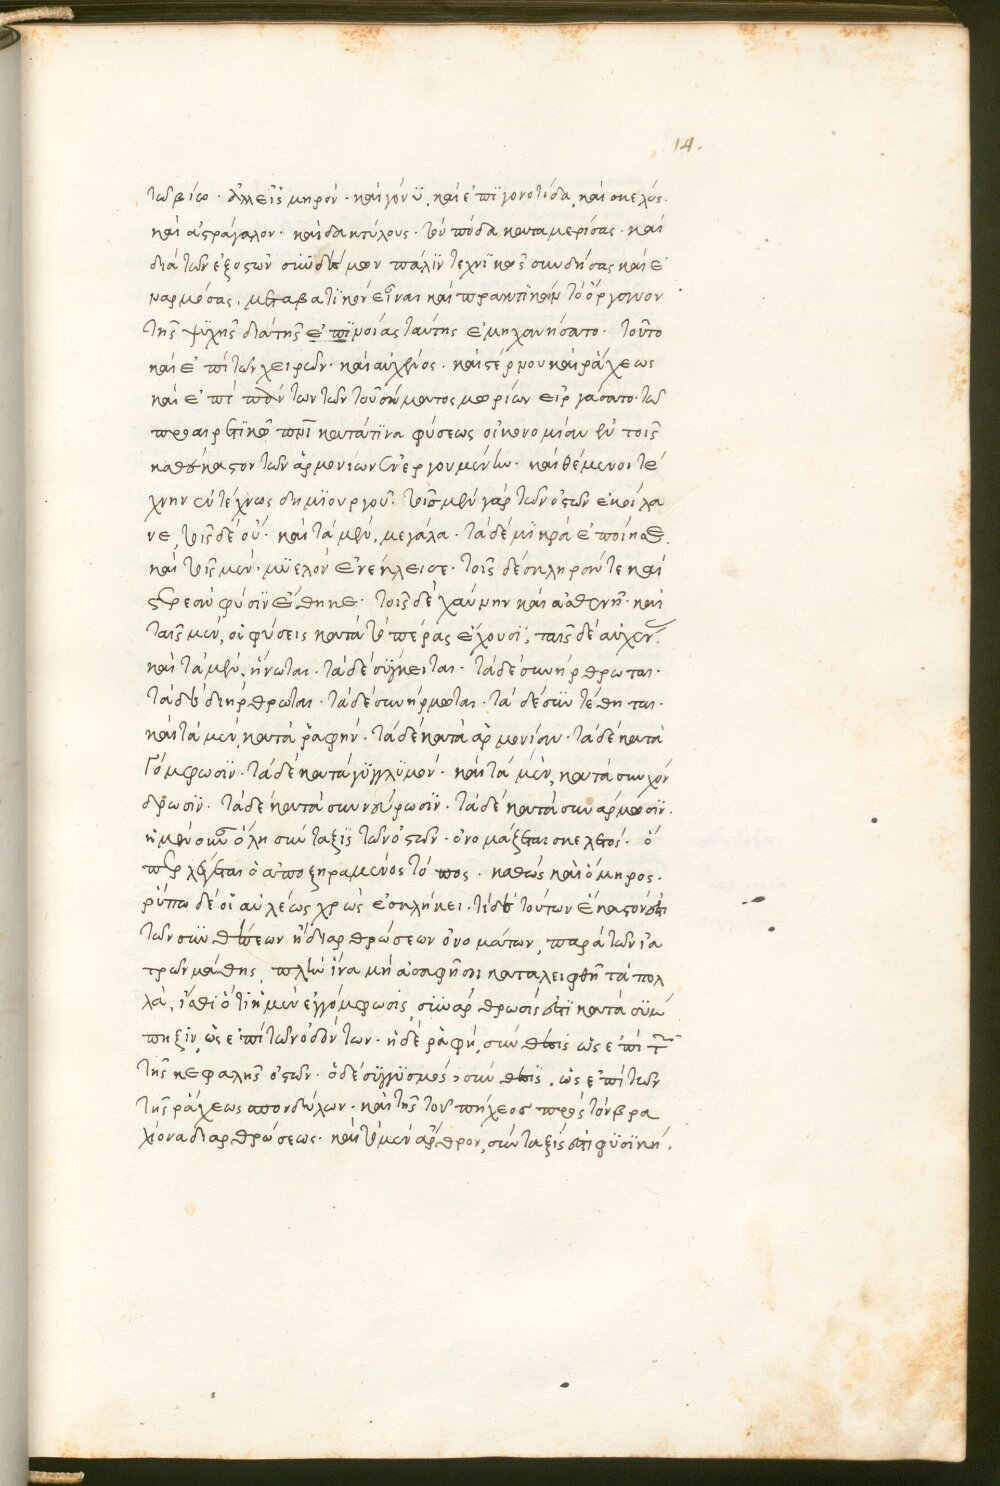 14.
τῶ βίω· ἀλλ εἰς μηρόν· καὶ γόνϋ, καὶ ἐπϊγονοτίδα, καὶ σκελος·
καὶ ἀστράγαλον· καὶ δακτύλους· τὸν πόδα καταμερίσας· καὶ
διὰ τῶν ἐξ ὀστῶν πάλϊν τεχνϊκῶς συνδήσας καὶ ἐ
ναρμόσας, μεταβατϊκὸν εἶναι καὶ πρακτϊκὸν τὸ ὄργανον
τῆς ψϋχῆς διὰ τῆς ἐπϊνοίας ταύτης ἐμηχανήσατο· τοῦτο
καὶ ἐπὶ τῶν χειρῶν· καὶ αὐχένος· καὶ στέρνου καὶ ράχεως
καὶ ἐπὶ πάντων τῶν τοῦ σώματος μορίων εἰργάσατο· τῶ
προαιρετϊκῶ κατά τϊνα φύσεως οἰκονομίαν ἐν τοῖς
καθέκαστον τῶν ἁρμονιῶν ἐνεργουμένω· καὶ θέμενοι τέ
χνην εὐτέχνως δημϊουργοῦ· τοῖς μὲν γὰρ τῶν ὀστῶν ἐκοίλα
νε, τοῖς δὲ οὔ· καὶ τὰ μὲν, μεγάλα· τὰ δὲ μϊκρὰ ἐποίησε.
καὶ τοῖς μὲν· μϋελὸν ἐνέκλεισε· τοῖς δὲ σκληράν τε καὶ
στερεὰν φύσϊν ἔθηκε· τοῖς δὲ χαύνην καὶ ἀσθενῆ· καὶ
ταῖς μὲν, οἱ φύσεις κατὰ τὸ πέρας ἔχουσϊ, ταῖς δὲ αὐχεν.
καὶ τὰ μὲν, ἥνωται· τὰ δὲ σύγκειται· τὰ δὲ συνήρθρωται·
τὰ δὲ διήρθρωται· τὰ δὲ συνήρμοσται· τὰ δὲ σϋντέθηται·
καὶ τὰ μὲν, κατὰ ῥαφήν· τὰ δὲ κατὰ ἁρμονίαν· τὰ δὲ κατὰ
Γόμφωσϊν· τὰ δὲ κατὰ γϋγγλϋμόν· καὶ τὰ μὲν, κατὰ συγχόν
δρωσϊν· τὰ δὲ κατὰ συννεύρωσϊν· τὰ δὲ κατὰ συνσάρκωσϊν.
ἡ μὲν οὖν ὅλη σύνταξϊς τῶν ὀστῶν· ὀνομάζεται σκελετός· ὅ
περ λέγεται ὁ ἀποξηραμένος τόπος· καθὼς καὶ ὁ μηρος·
ῥύπω δέ οἱ αὐλέως χρὼς ἐσκλήκει· τί δὲ τούτων ἕκαστόν ἐστι
τῶν σϋνθέσεων ἢ διαρθρώσεων ὀνομάτων, παρὰ τῶν ἰα
τρῶν μάθῃς, πλὴν ἵνα μὴ ἀσαφῆ σοι καταλειφθῆ τὰ πολ
λὰ, ἴσθι ὅτι ἡ μὲν ἐγγόμφωσϊς, σϋναρθρωσίς ἐστϊ κατὰ σϋμ
πηξϊν, ὡς ἐπὶ τῶν ὀδόντων· ἡ δὲ ῥαφή, σύνθεσϊς ὡς ἐπὶ τ
τῆς κεφαλῆς ὀστῶν· ὁ δὲ σϋγγϋσμὸς, σύνθεσϊς. ὡς ἐπὶ τῶν
τῆς ράχεως σπονδύλων· καὶ τῆς τοῦ πήχεος πρὸς τὸν βρα
χίονα διαρθρώσεως· καὶ τὸ μὲν ἄρθρον, σύνταξίς ἐστι φϋσϊκή.